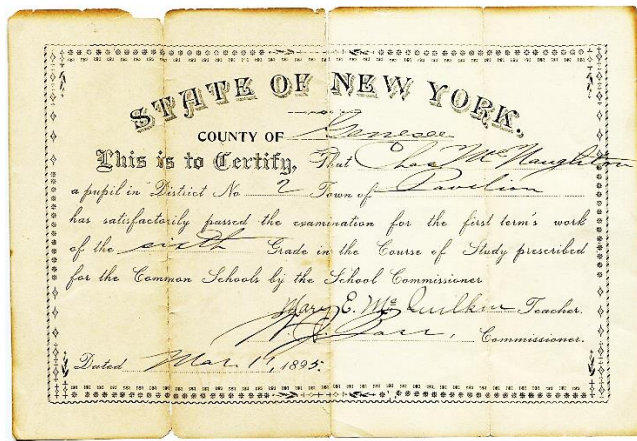 STATE OF NEW YORK.
COUNTY OF Genesee
This is to Certify, That Chas McNaughton
a pupil in District No 2 Town of Pavilion
has satisfactorily passed the examination for the first term's work
of the sixth Grade in the Course of Study prescribed
for the Common Schools by the School Commissioner
Mary E. Mc Quilkin Teacher.
Commissioner.
Dated Mar. 1895.